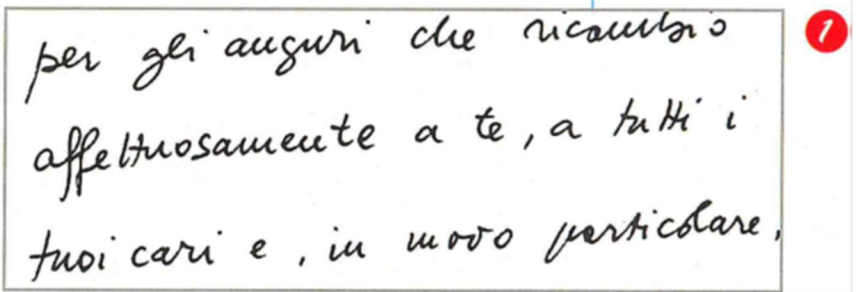 per gli auguri che ricambio
affettuosamente a te, a tutti i
tuoi cari e, in modo particolare,
1